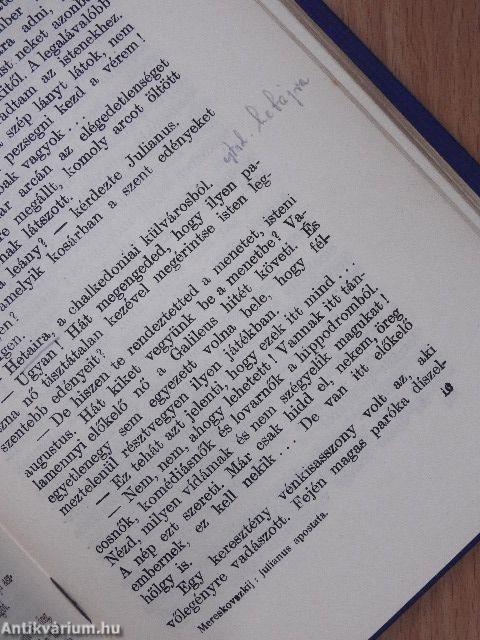 ra adni,
st neket azonba
től. A legalávalóbb
adtam az istenekhez.
szép lányt látok, nem
pezsegni kezd a vérem!
bak vagyok . . .
ar arcán az elégedetlenséget
re megállt, komoly arcot öltött
nak látszott.
a leány? — kérdezte Julianus.
amelyik kosárban a szent edényeket
en?
gen.
— Hetaira, a chalkedoniai külvárosból.
— Ugyan! Hát megengeded, hogy ilyen pa-
zna nő tisztátalan kezével megérintse isten leg-
szentebb edényeit?
— De hiszen te rendeztetted a menetet, isteni
augustus. Hát kiket vegyünk be a menetbe? Va-
lamennyi előkelő nő a Galileus hitét követi. És
egyetlenegy sem egyezett volna bele, hogy fél-
meztelenül résztvegyen ilyen játékban.
— Ez tehát azt jelenti, hogy ezek itt mind . . .
— Nem, nem, ahogy lehetett! Vannak itt tán-
cosnők, komédiásnők és lovarnők a hippodromból.
Nézd, milyen vidámak és nem szégyelik magukat!
A nép ezt szereti. Már csak hidd el, nekem, öreg
embernek, ez kell nekik . . . De van itt előkelő
hölgy is.
Egy keresztény vénkisasszony volt az, aki
vőlegényre vadászott. Fején magas paróka díszel-
Mereskovszkij: Julianus apostata.
Antikvárium.hu